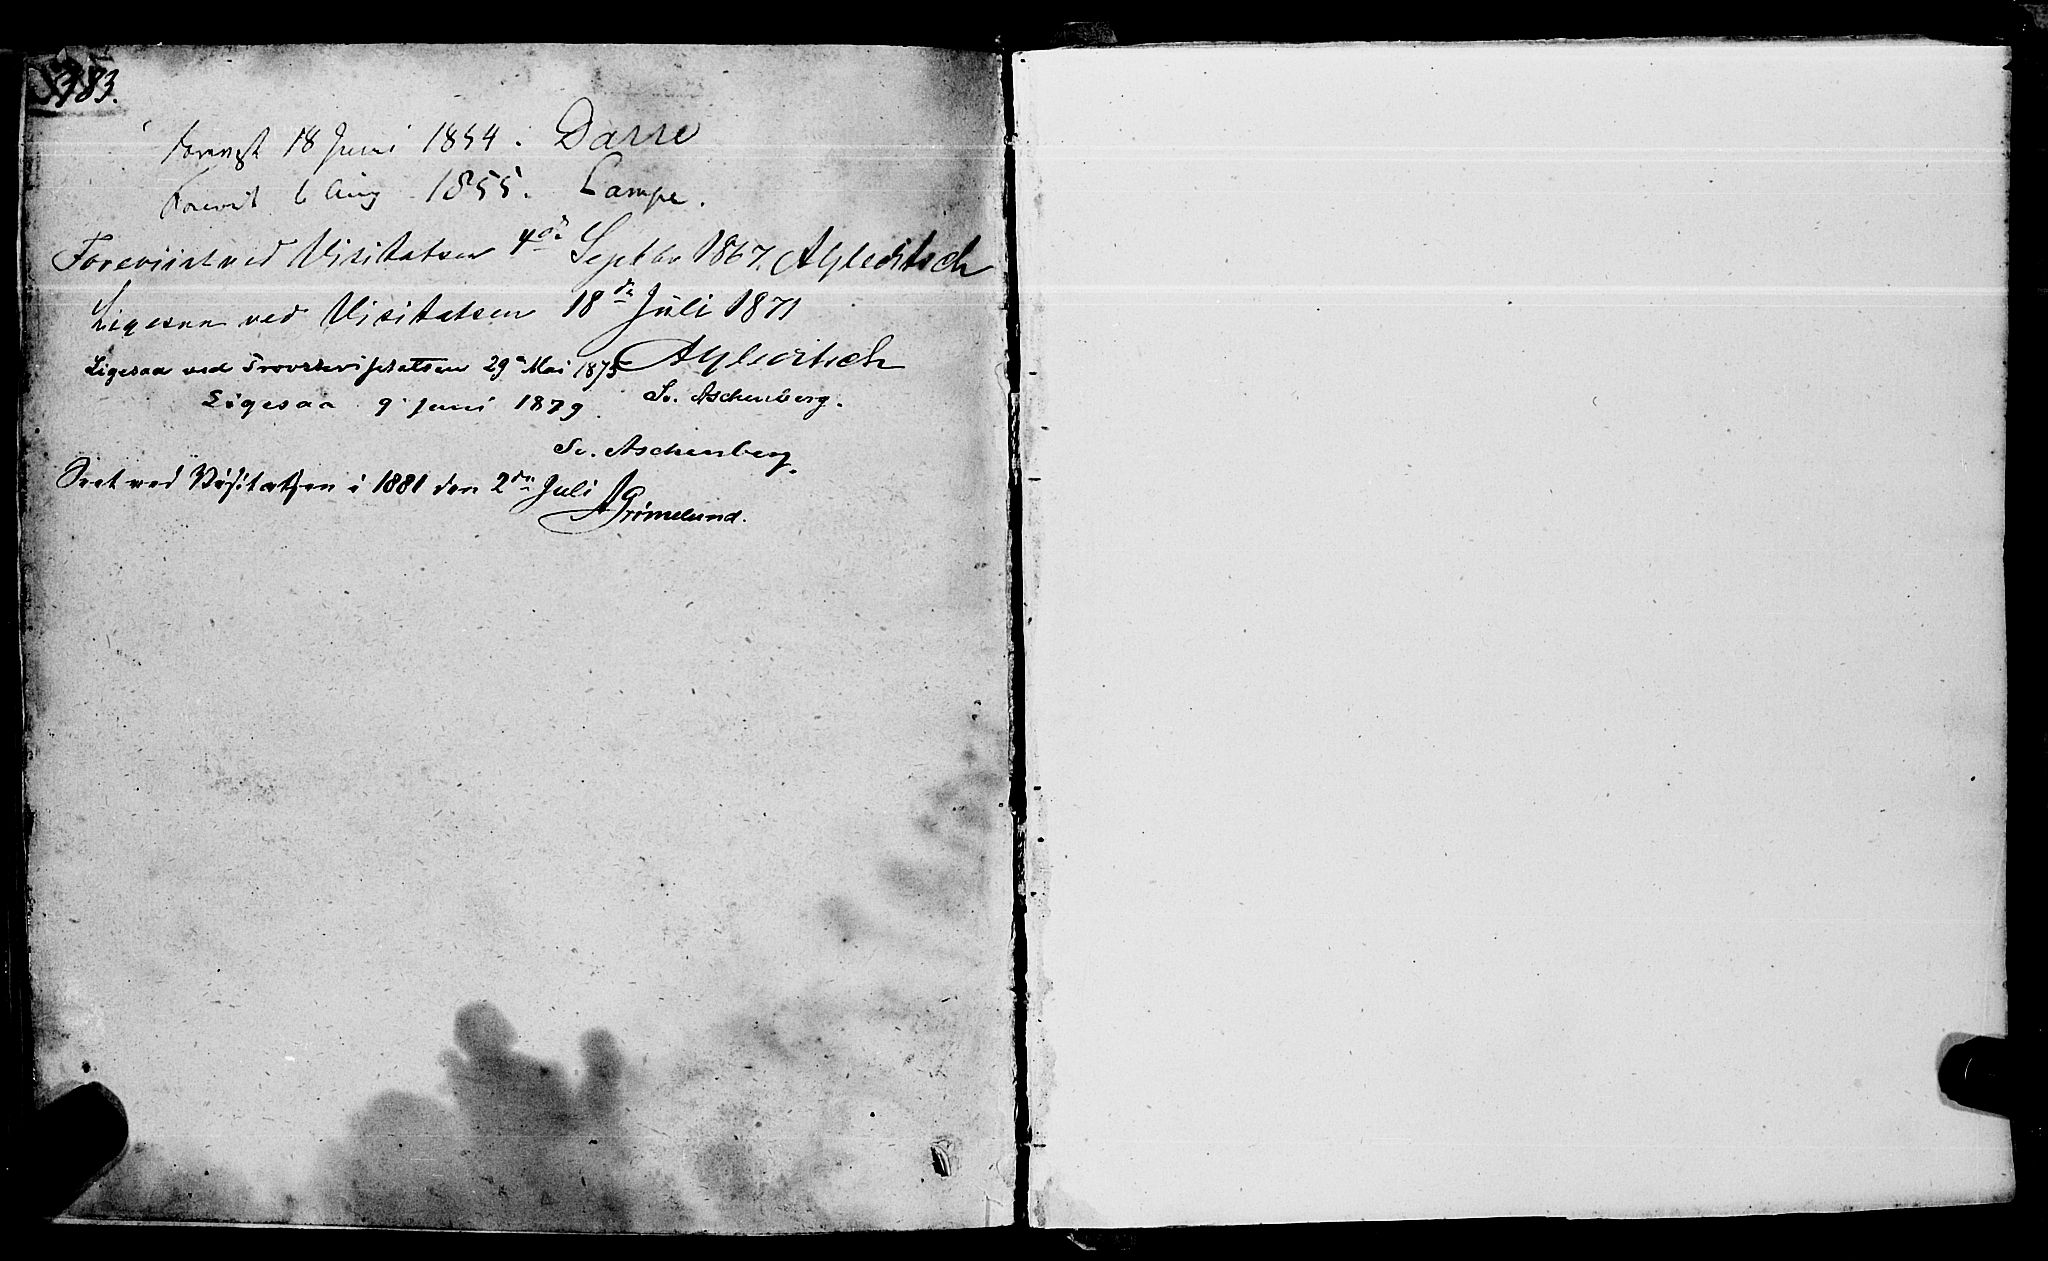 383.
Forevist 18 Juni 1854. Darre
Forevist 6 Aug 1855. Lampe.
Foreviist ved Visitatsen 4de Septbr 1867. AGleditsch
Ligesaa ved Visitatsen 18de Juli 1871
AGleditsch
Ligesaa ved Provstevisitatsen 29 Mai 1875
Sv. Aschenberg.
Ligesaa 9 Juni 1879.
Sv. Aschenberg.
Seet ved Visitatsen i 1881 den 2den Juli
AGrimelund.